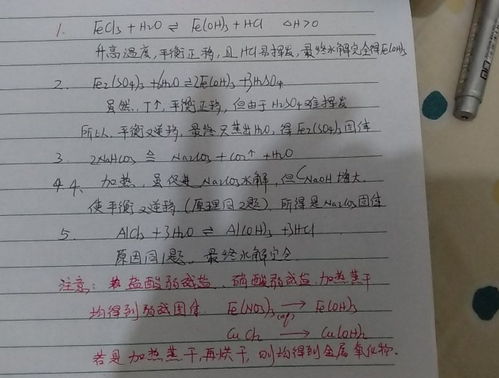 1. FeCl₃ + H₂O ⇌ Fe(OH)₃ + HCl △H>0
升高温度,平衡正移,且HCl易挥发,最终水解完全得Fe(OH)₃
2. Fe₂(SO₄)₃ + 6H₂O ⇌ 2Fe(OH)₃ + 3H₂SO₄
虽然,T↑,平衡正移,但由于H₂SO₄难挥发
所以,平衡又逆移,最终只蒸出H₂O,得Fe₂(SO₄)₃固体
3. 2NaHCO₃ ≜ Na₂CO₃ + CO₂↑ + H₂O
4 4. 加热,虽促进Na₂CO₃水解,但C NaOH 增大.
使平衡又逆移(原理同2题)所得是Na₂CO₃固体
5. AlCl₃ + 3H₂O ⇌ Al(OH)₃ + 3HCl
原因同1题,最终水解完全
注意: 若盐酸弱碱盐、硝酸弱碱盐,加热蒸干
均得到弱碱固体 Fe(NO₃)₃(aq) → Fe(OH)₃
CuCl₂ → Cu(OH)₂
若是加热蒸干,再烘干,则均得到金属氧化物.